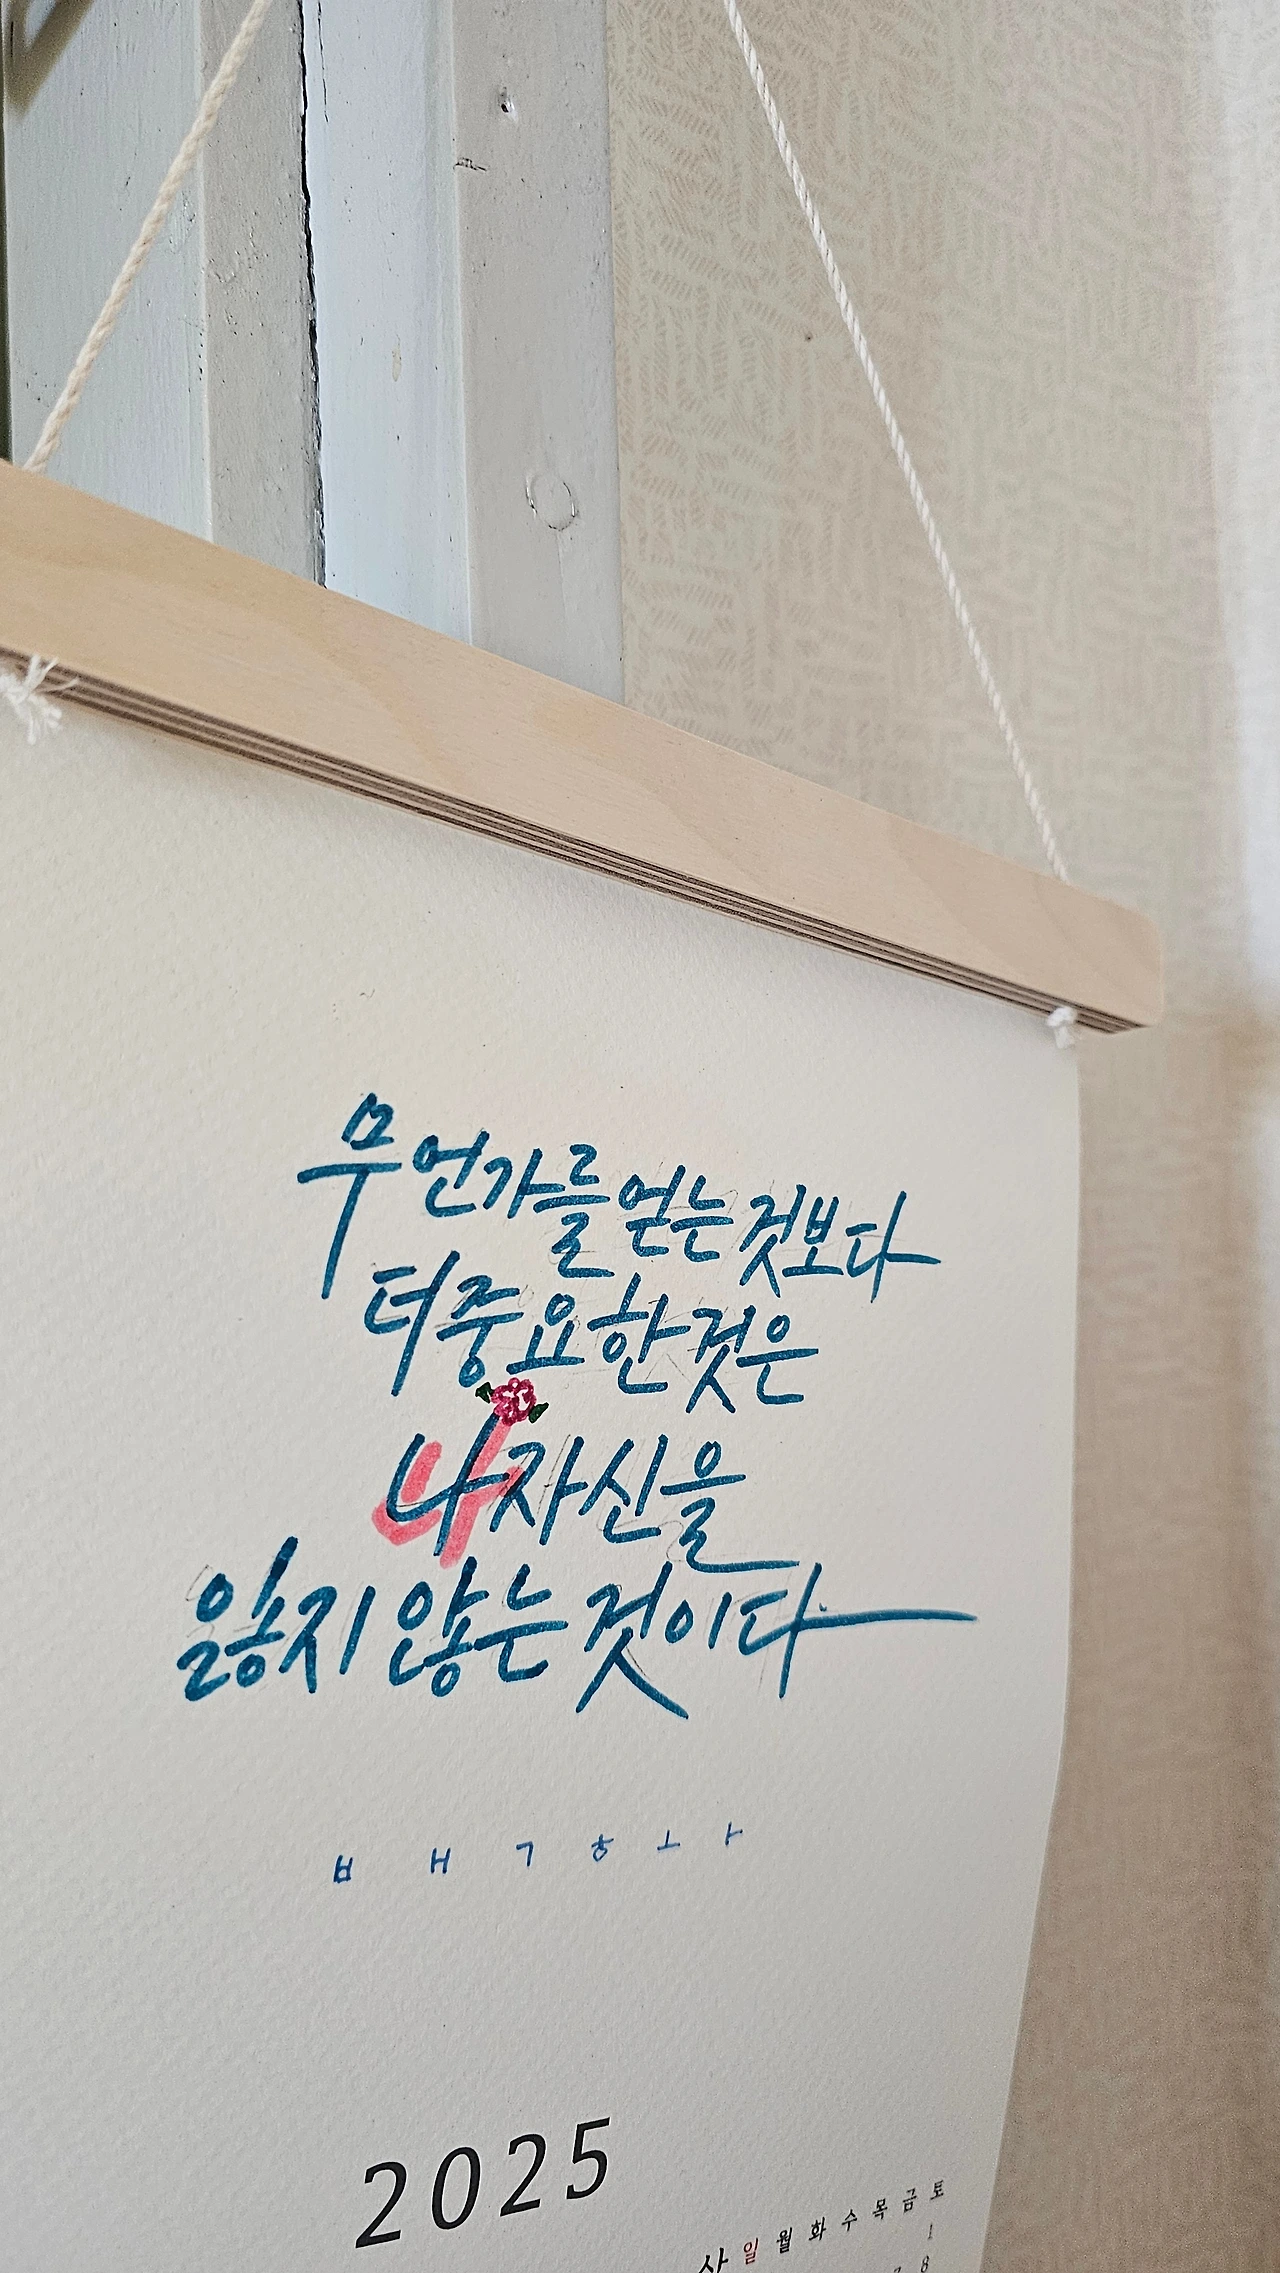 무언가를 얻는 것보다
더 중요한 것은
나 자신을
잃지 않는 것이다
ㅂ ㅐ ㄱ ㅎ ㅗ ㅏ
2025
일 월 화 수 목 금 토
1
8